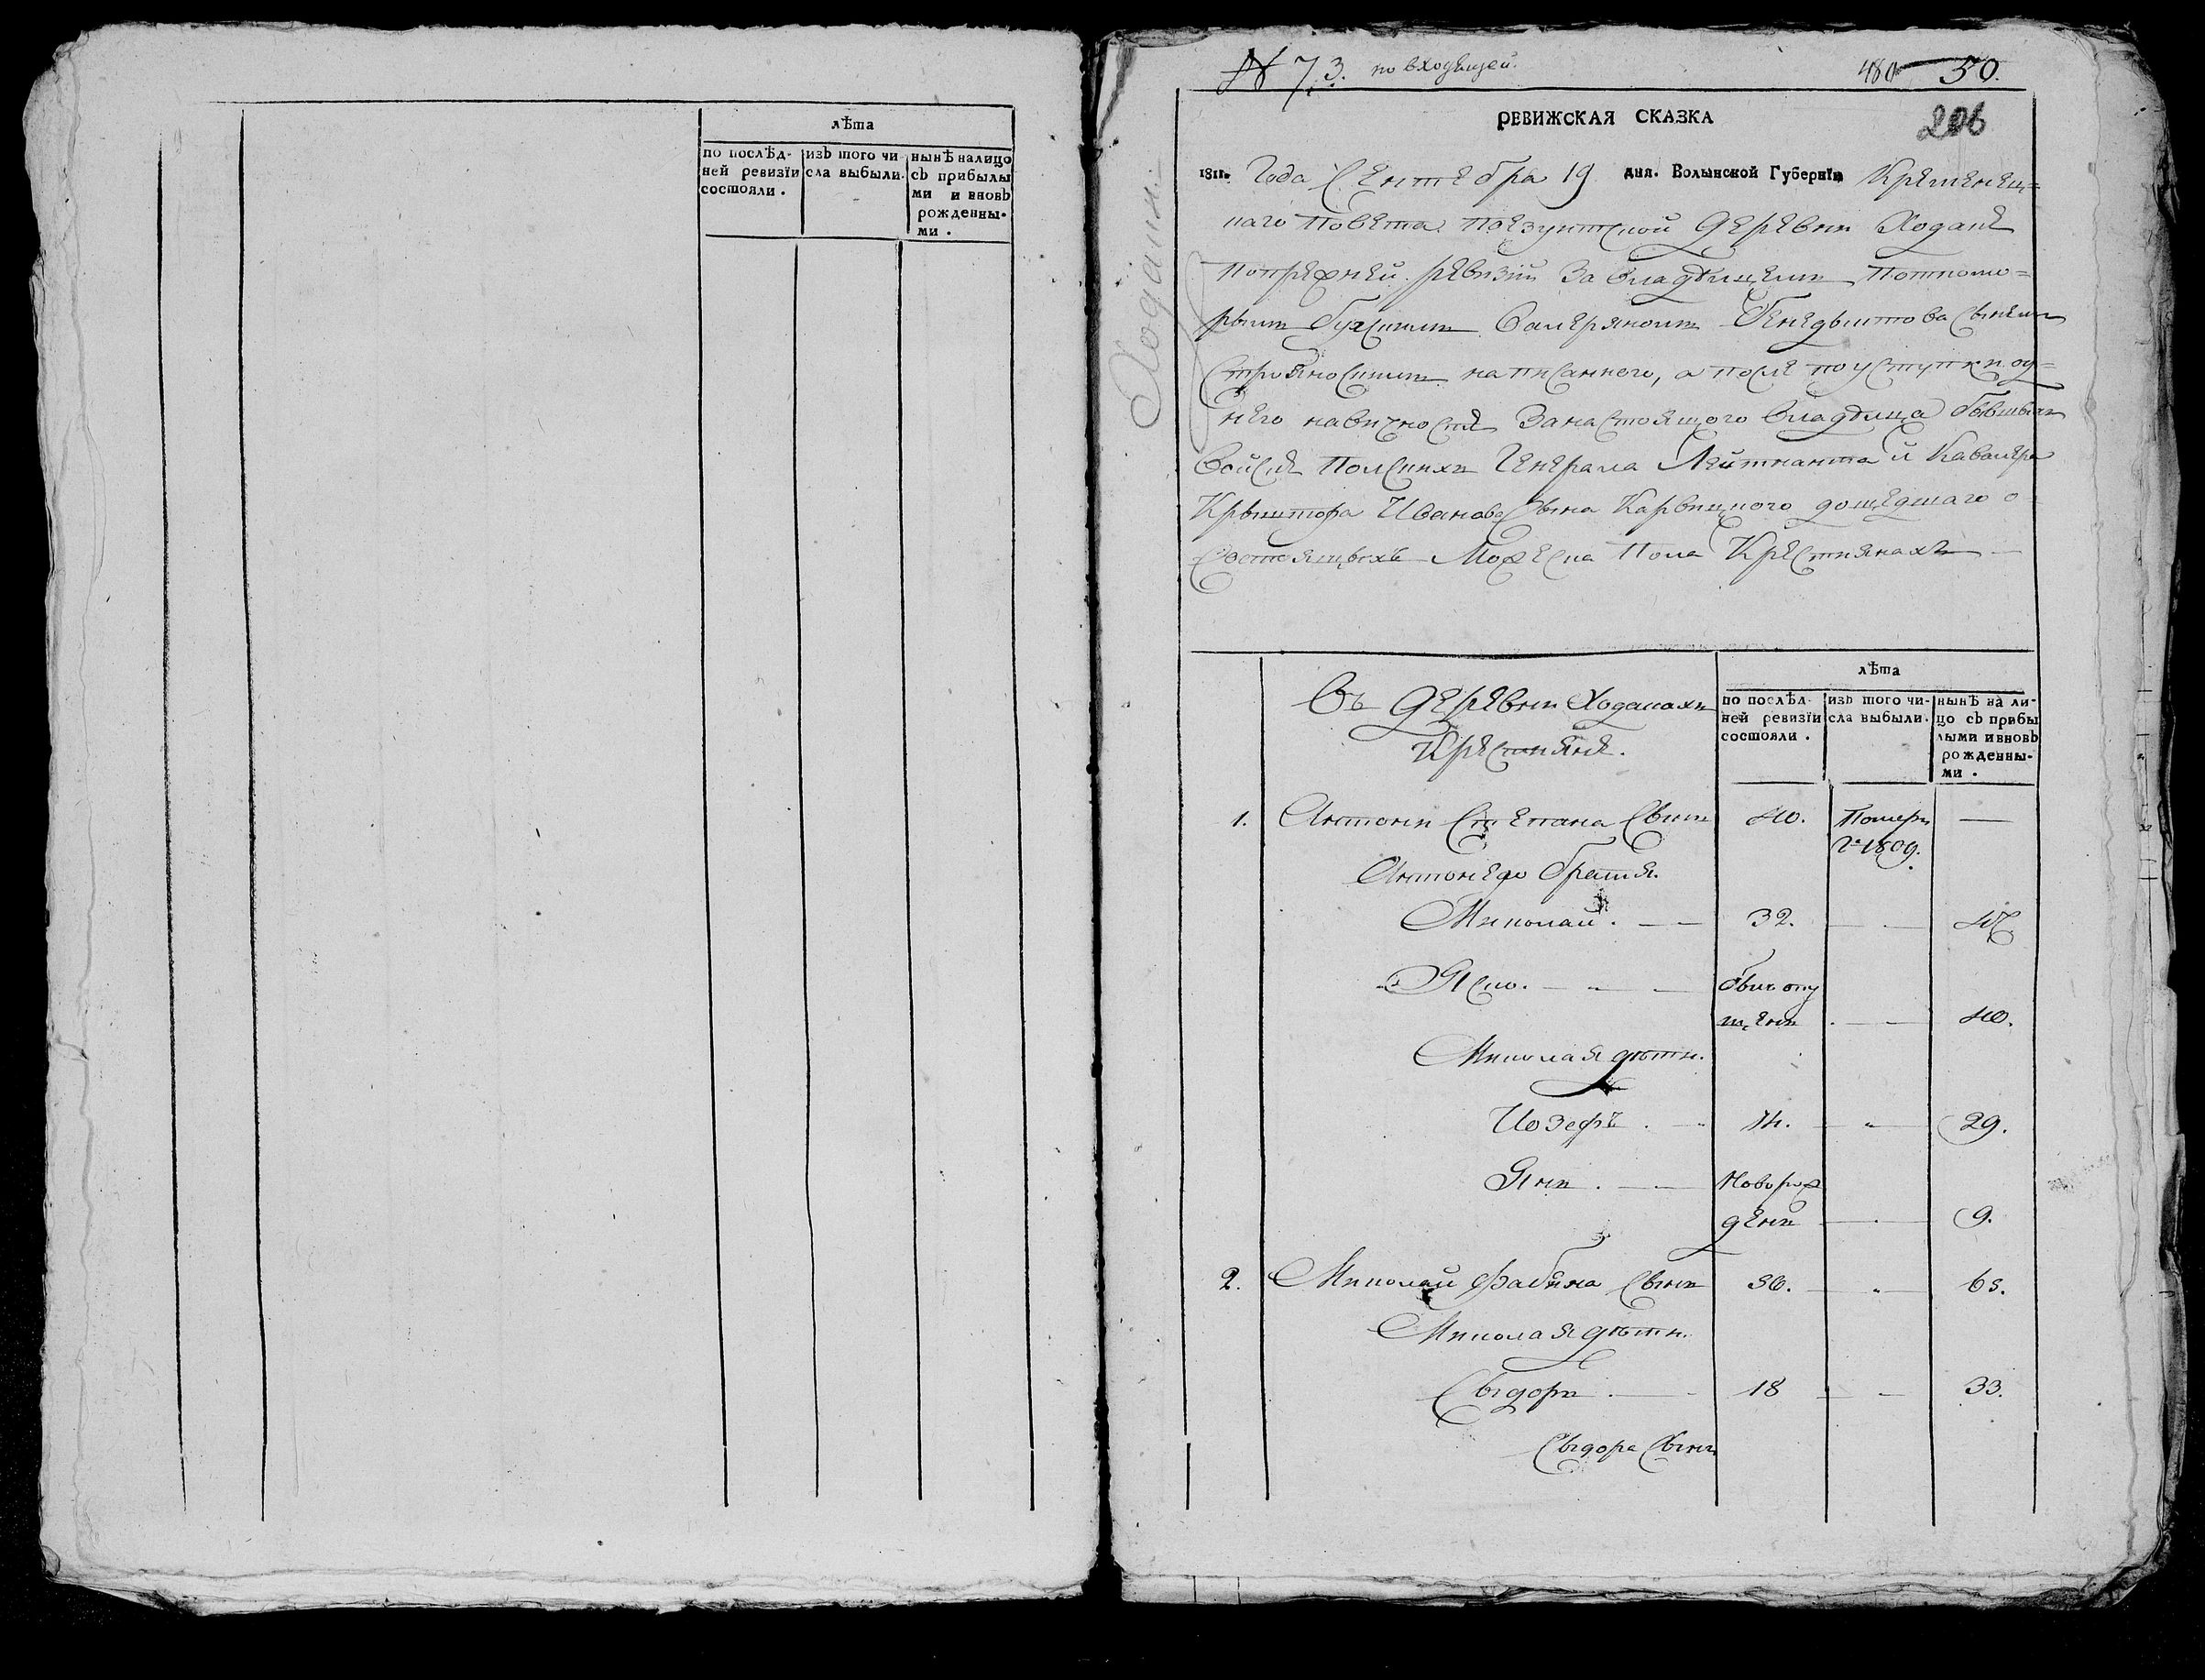 лѣта
по послѣд-
ней ревизїи
состояли .
изЪ того чи-
сла выбыли.
нынѣ налицо
сЪ прибылы
ми и вновЬ
рожденны-
ми .
№ 73. по входящей.
480 50.
206
РЕВИЖСКАЯ СКАЗКА
1811. Года Сентебра 19 дня. Волынской Губернїи Кременец=
каго Повета Поезуитской Деревни Ходакѣ
попрежней ревизїи За владѣлцемъ
Валеряномъ Бенедыктова Сыномъ
написанного, а после по уступки од=
него За настоящого Владѣлца бывшыхъ
Войскъ Полскихъ Генерала Лейтнанта и Кавалера
Крыштофа Иванова Сына Карвицкого дошедшаго о
Состоящыхъ Мужеска Пола Крестянахъ
Ходаки.
Въ Деревни Ходаках
Крестяне.
лѣта
по послѣд-
ней ревизїи
состояли .
изЪ того чи-
сла выбыли.
нынѣ на ли-
цо сЪ прибы
лыми и вновЬ
рожденны-
ми .
1. Антонъ Степана Сынъ 40. Померъ —
1809.
Антонего братья.
Миколай . 32.
Яско. былъ опу
щенъ 40.
Миколая дѣти.
Иозефъ 14. 29.
Янъ . Новорож
денъ 9.
2. Миколай Фабяна Сынъ
Миколая дѣти.
Сыдоръ 18 33.
Сыдора Сынъ